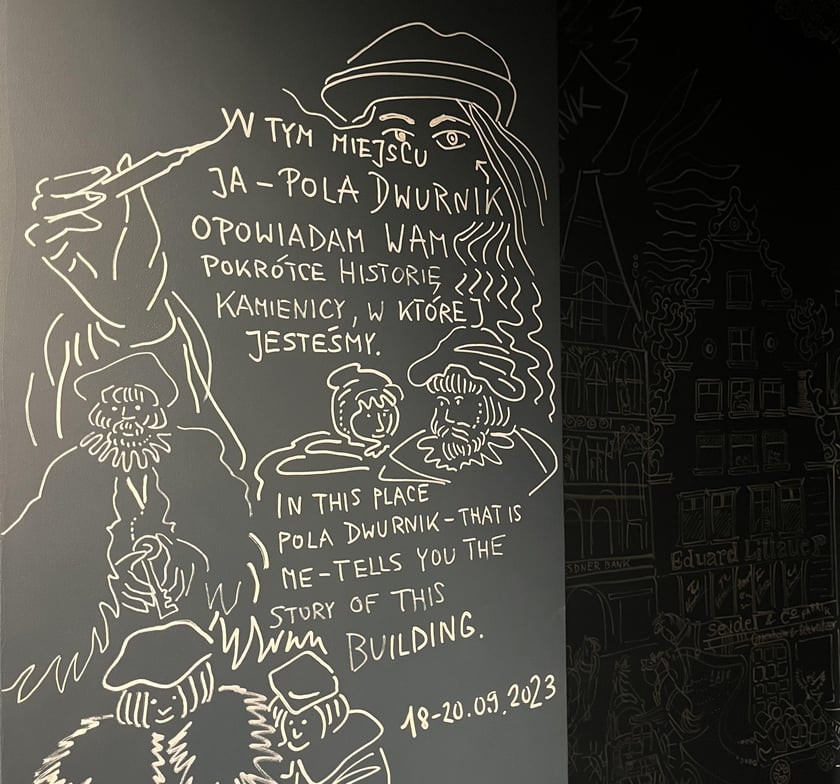 W TYM MIEJSCU
JA – POLA DWURNIK
OPOWIADAM WAM
POKRÓTCE HISTORIĘ
KAMIENICY, W KTÓREJ
JESTEŚMY.
IN THIS PLACE
POLA DWURNIK – THAT IS
ME – TELLS YOU THE
STORY OF THIS
BUILDING.
18-20.09.2023
SDNER BANK
Eduard Littauer